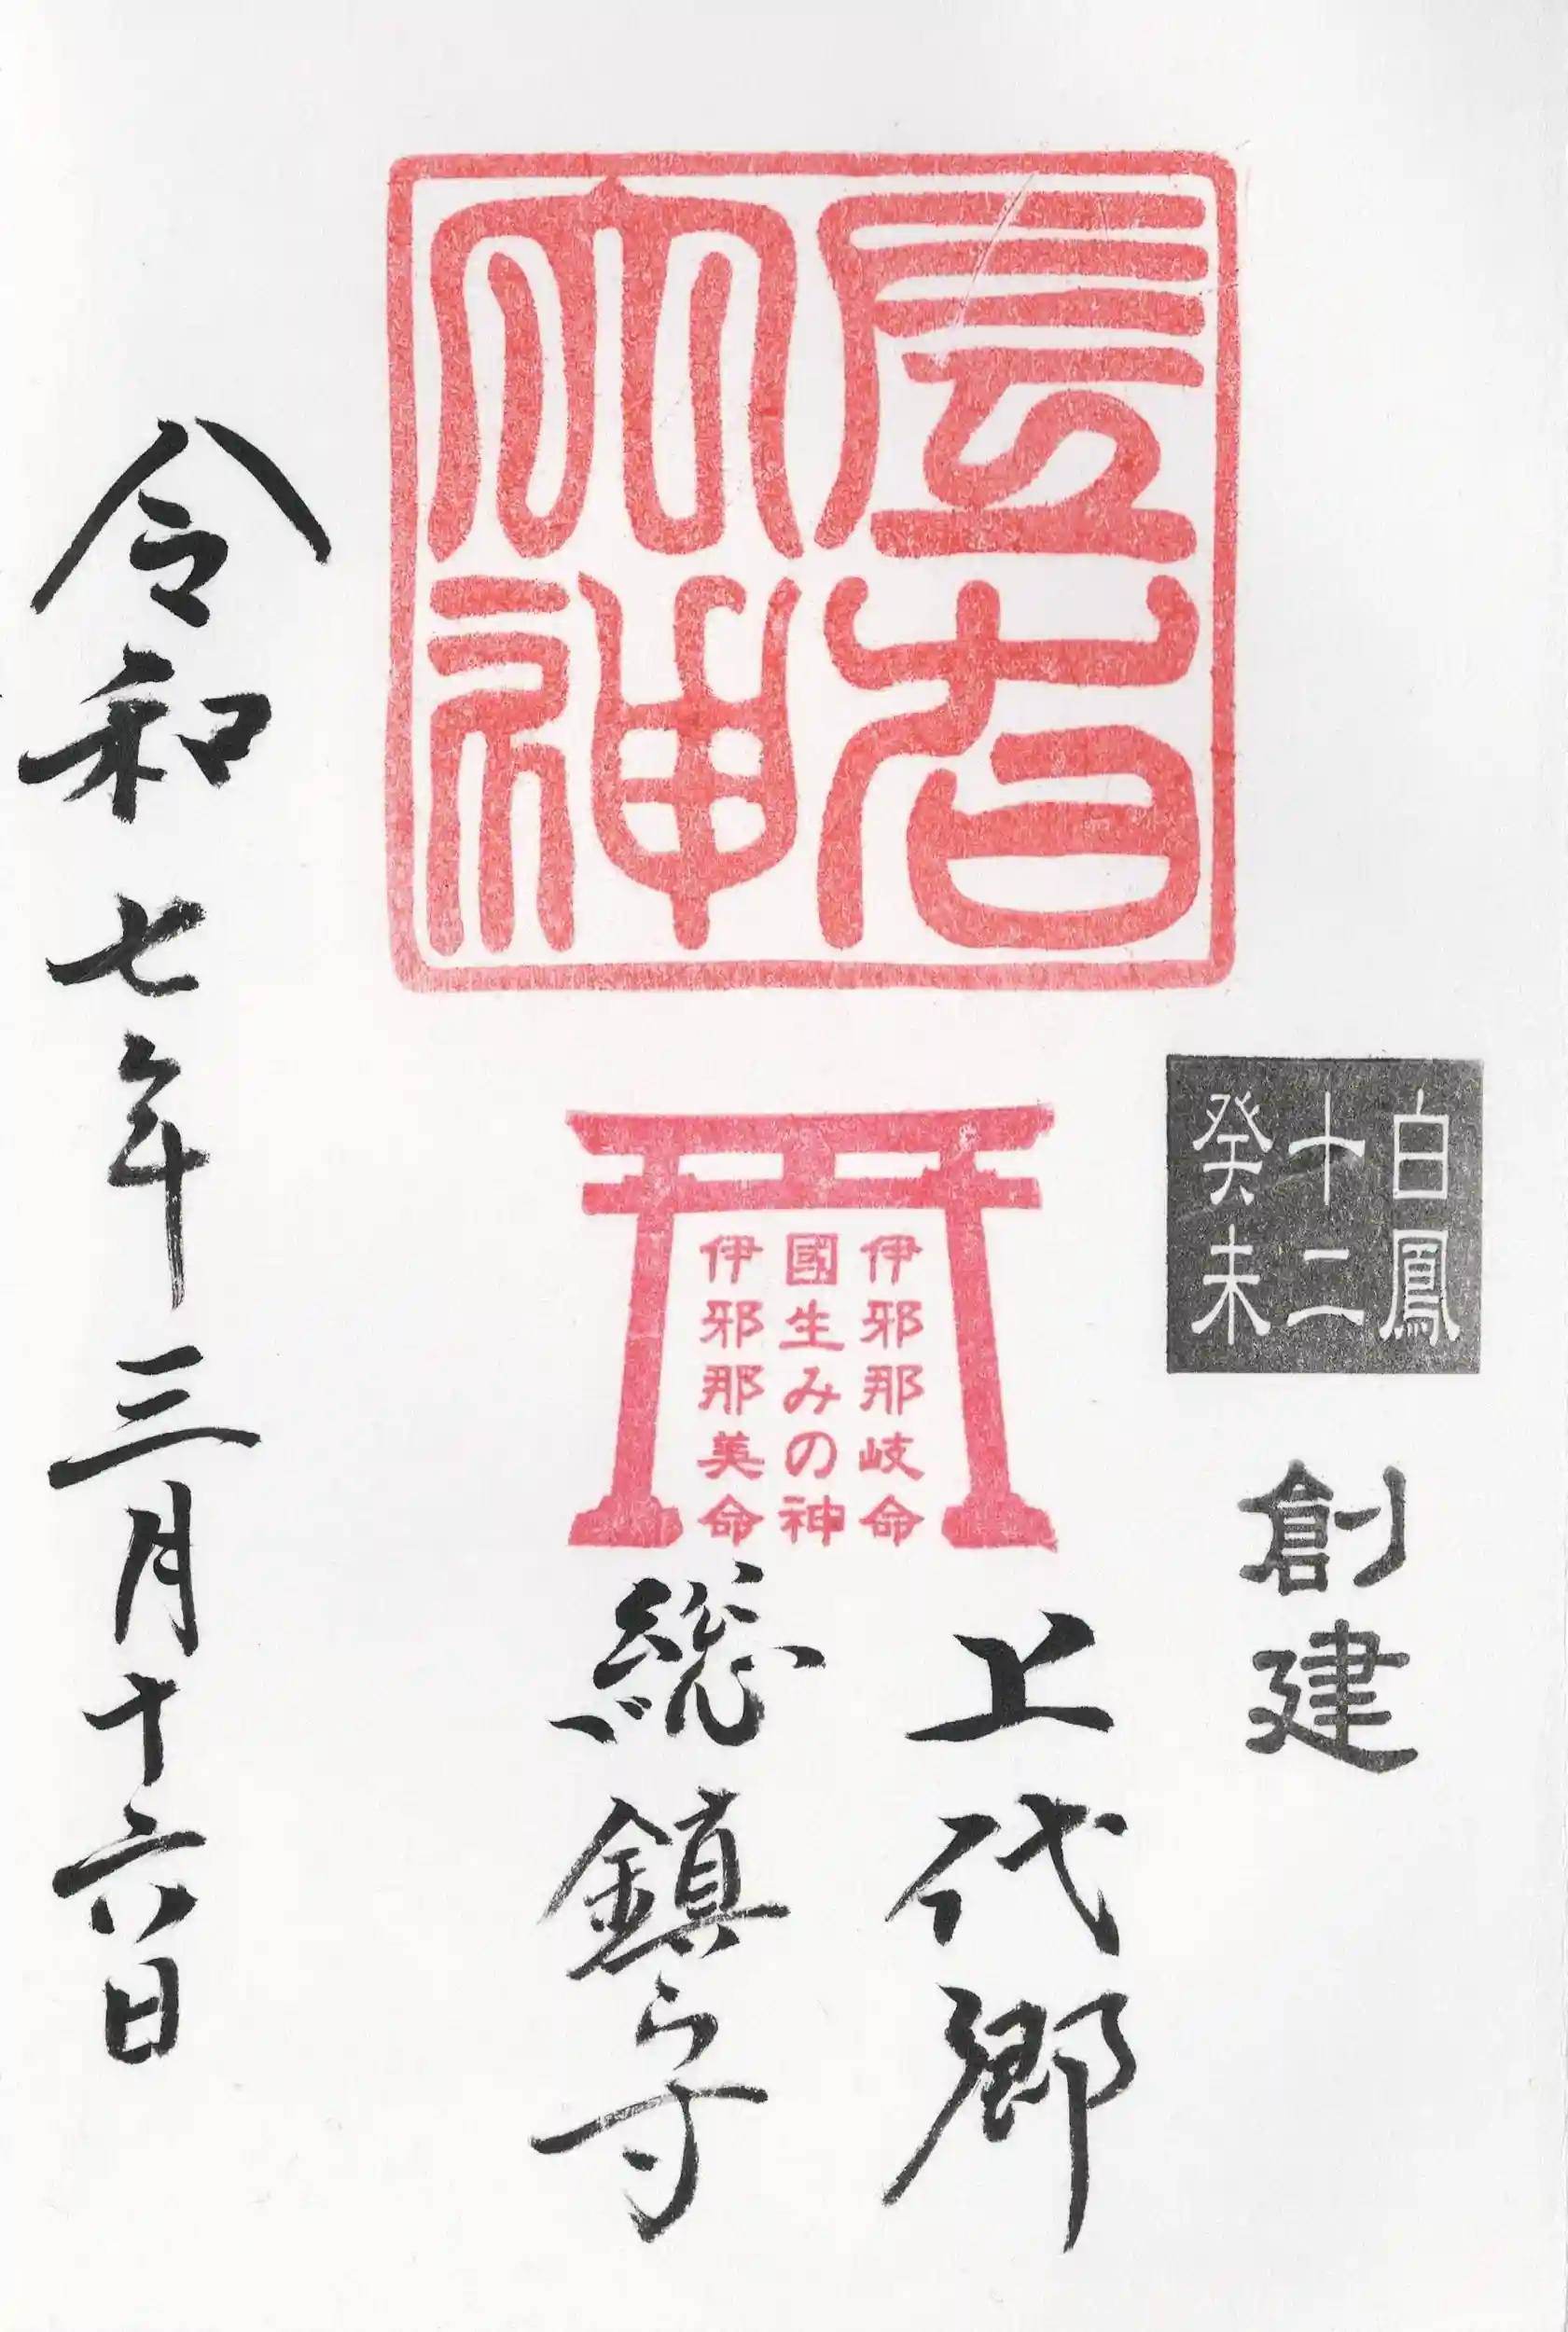 神
白鳳
十二
癸未
創建
伊邪那岐命
國生みの神
伊邪那美命
上代郷
総鎮守
令和七年三月十六日